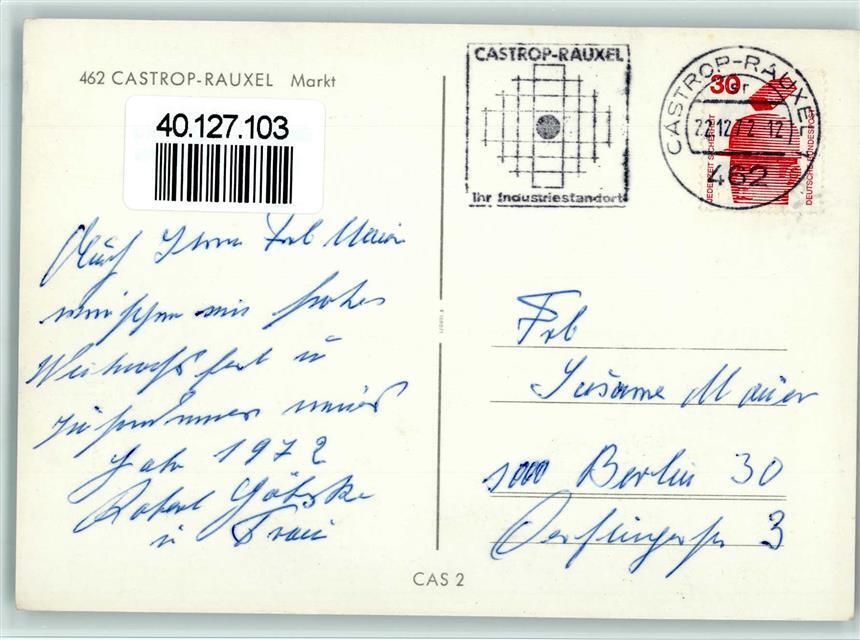 462 CASTROP-RAUXEL Markt
40.127.103
CASTROP-RAUXEL
Ihr Industriestandort
CASTROP-RAUXEL
22.12.72-12
462
30
JEDERZEIT SICHERHEIT
DEUTSCHE BUNDESPOST
Auch Ihnen Frl Maier
wünschen wir frohes
Weihnachtsfest u
zufriedenes neues
Jahr 1972
Robert
u Frau
Frl
Susanne Maier
1000 Berlin 30
Derflingerstr 3
CAS 2